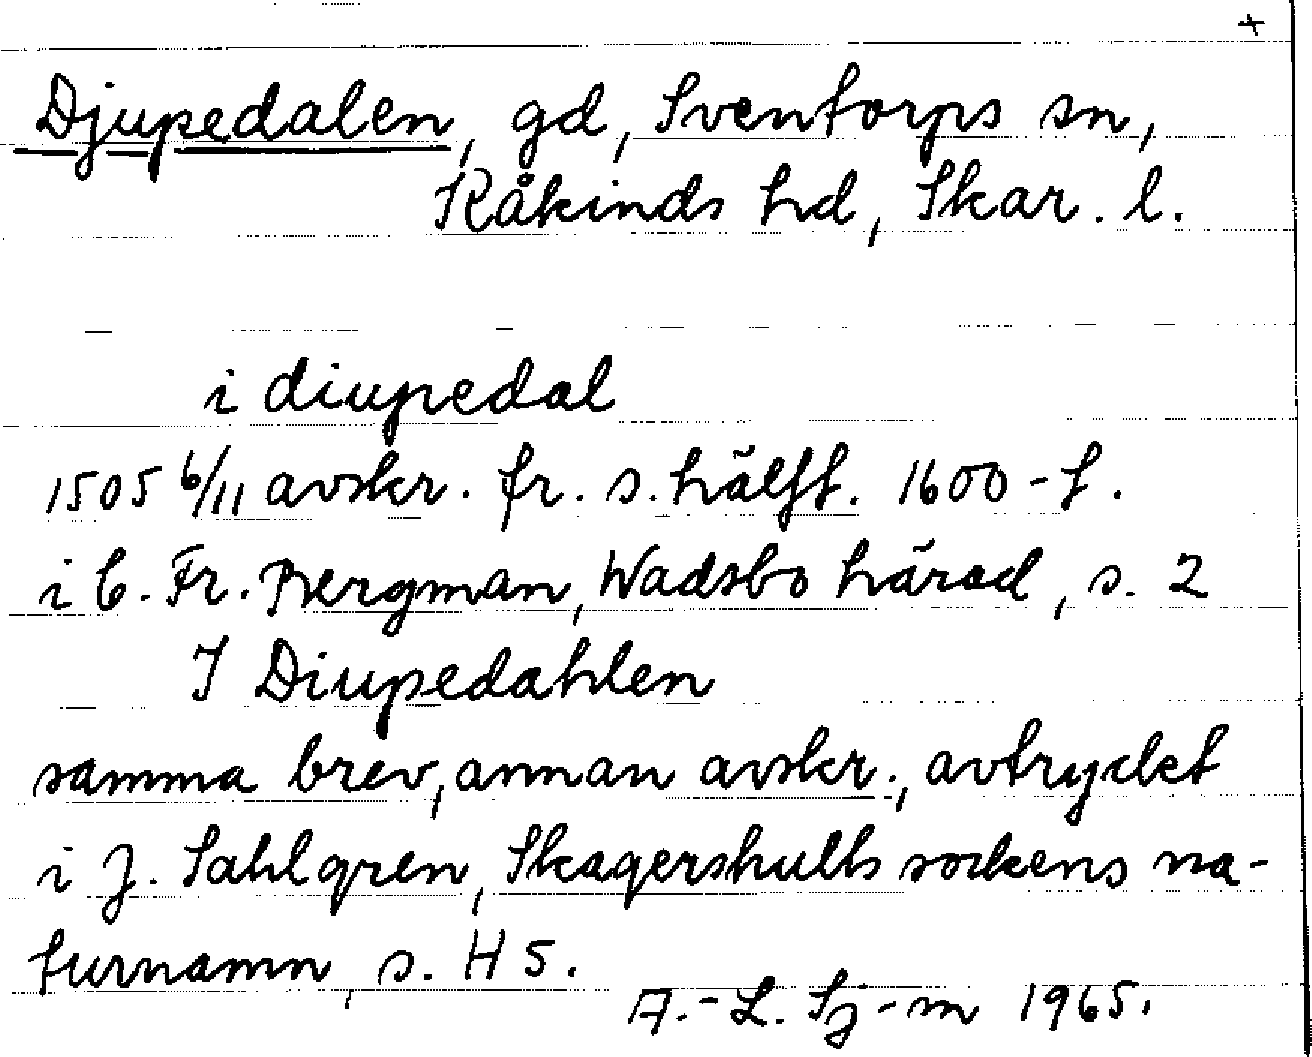 +
Djupedalen, gd, Sventorps sn,
Kåkinds hd, Skar. l.
i diupedal
1505 6/11 avskr. fr. s. hälft. 1600-t.
i C. Fr. Bergman, Wadsbo härad, s. 2
I Diupedahlen
samma brev, annan avskr., avtryckt
i J. Sahlgren, Skagershults sockens na-
turnamn, s. H 5.
A.-L. Sj-m 1965.